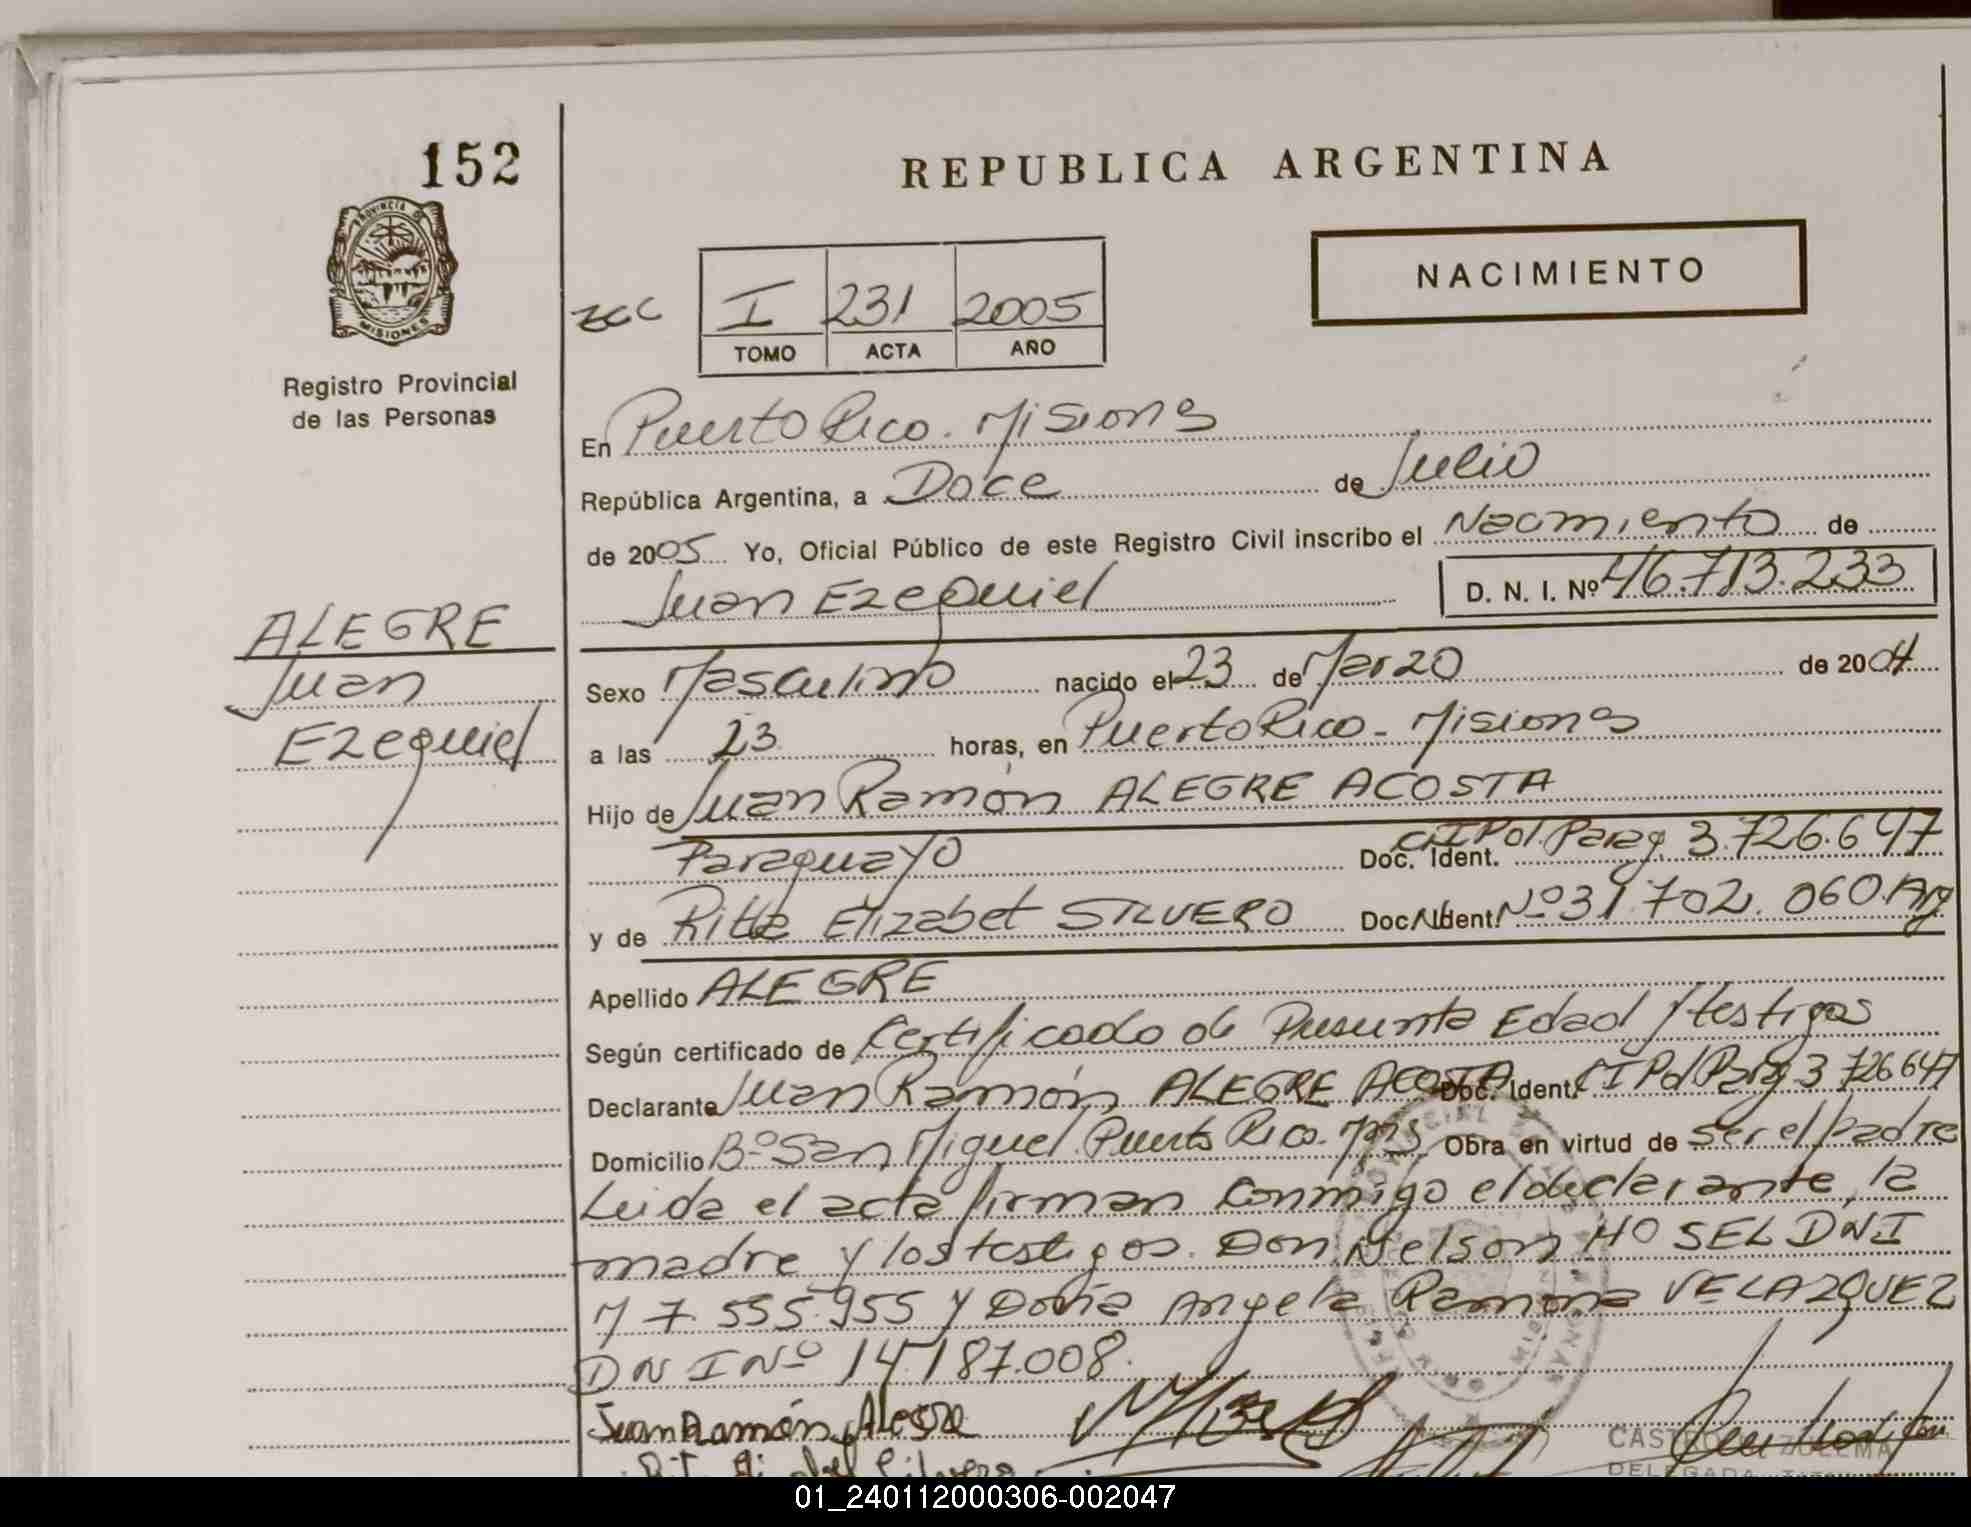 152
REPUBLICA ARGENTINA
PROVINCIA DE
MISIONES
Registro Provincial
de las Personas
NACIMIENTO
I 231 2005
TOMO ACTA AÑO
En Puerto Rico. Misiones
República Argentina, a Doce de Julio
de 2005 Yo, Oficial Público de este Registro Civil inscribo el Nacimiento de
Juan Ezequiel D. N. I. Nº 46.713.233
ALEGRE
Juan
Ezequiel
Sexo Masculino nacido el 23 de Marzo de 2004
a las 23 horas, en Puerto Rico - Misiones
Hijo de Juan Ramón ALEGRE ACOSTA
Paraguayo Doc. Ident. CI Pol. Parag. 3.726.647
y de Ritta Elizabet SILVERO Doc. Ident. Nº 31.702.060. Arg
Apellido ALEGRE
Según certificado de Certificado de Presunta Edad y testigos
Declarante Juan Ramón ALEGRE ACOSTA Doc. Ident. CI Pol Parg 3 726 647
Domicilio Bº San Miguel. Puerto Rico. Mns Obra en virtud de ser el padre
Leida el acta firman conmigo el declarante, la
madre y los testigos. Don Nelson HOSEL DNI
M 7.555.955 y Doña Angela Ramona VELAZQUEZ
DNI Nº 14.187.008.
Juan Ramón Alegre
ZULEMA
DELEGADA
01_240112000306-002047